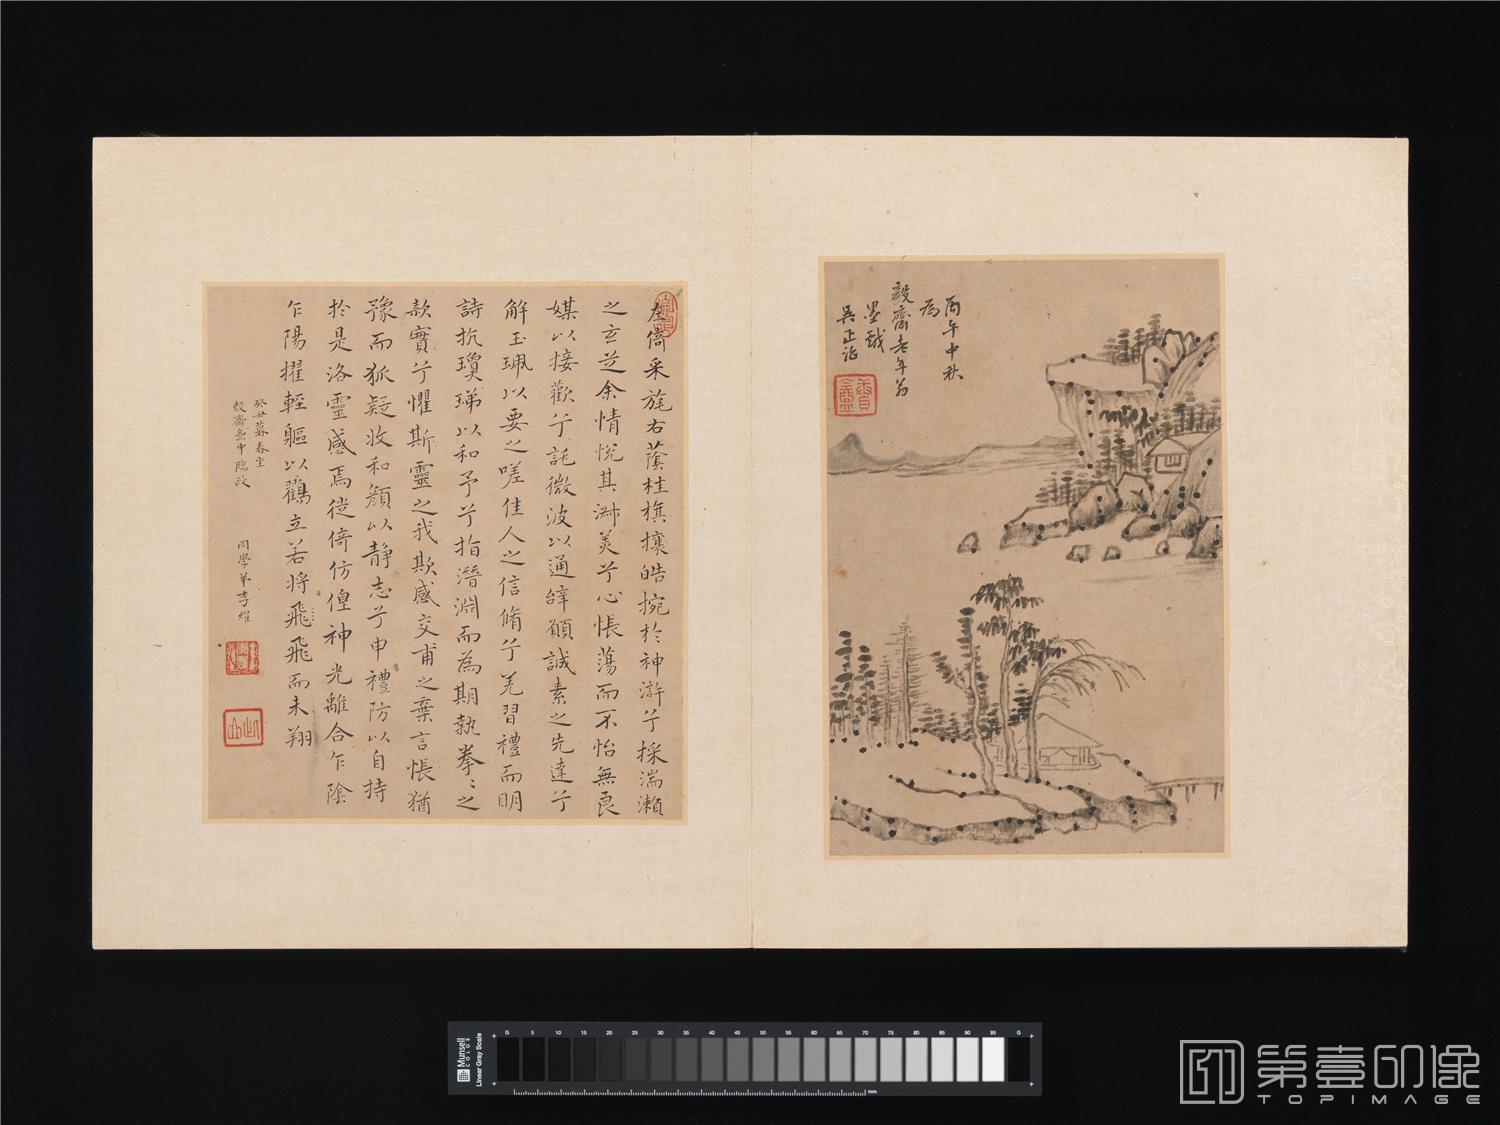 丙午中秋
為
毅齋老年翁
墨戲
吳正治
左倚采旄右蔭桂旗攘皓捥於神滸兮採湍瀨
之玄芝余情悅其淑美兮心悵蕩而不怡無良
媒以接歡兮託微波以通辭願誠素之先達兮
解玉珮以要之嗟佳人之信脩兮羌習禮而明
詩抗瓊珶以和予兮指潛淵而為期執拳〻之
款實兮懼斯靈之我欺感交甫之棄言悵猶
豫而狐疑收和顏以静志兮申禮防以自持
於是洛靈感焉徙倚仿偟神光離合乍陰
乍陽擢輕軀以鸖立若將飛飛而未翔
癸丑暮春坐
毅齋壺中臨政
同學弟李
Munsell
COLOR
Linear Gray Scale
G 5 10 15 20 25 30 35 40 45 50 55 60 65 70 75 80 85 90 95 G
mm
第壹印像
TOPIMAGE